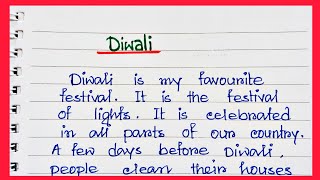 Diwali
Diwali is my favourite
festival. It is the festival
of lights. It is celebrated
in all parts of our country.
A few days before Diwali,
people clean their houses